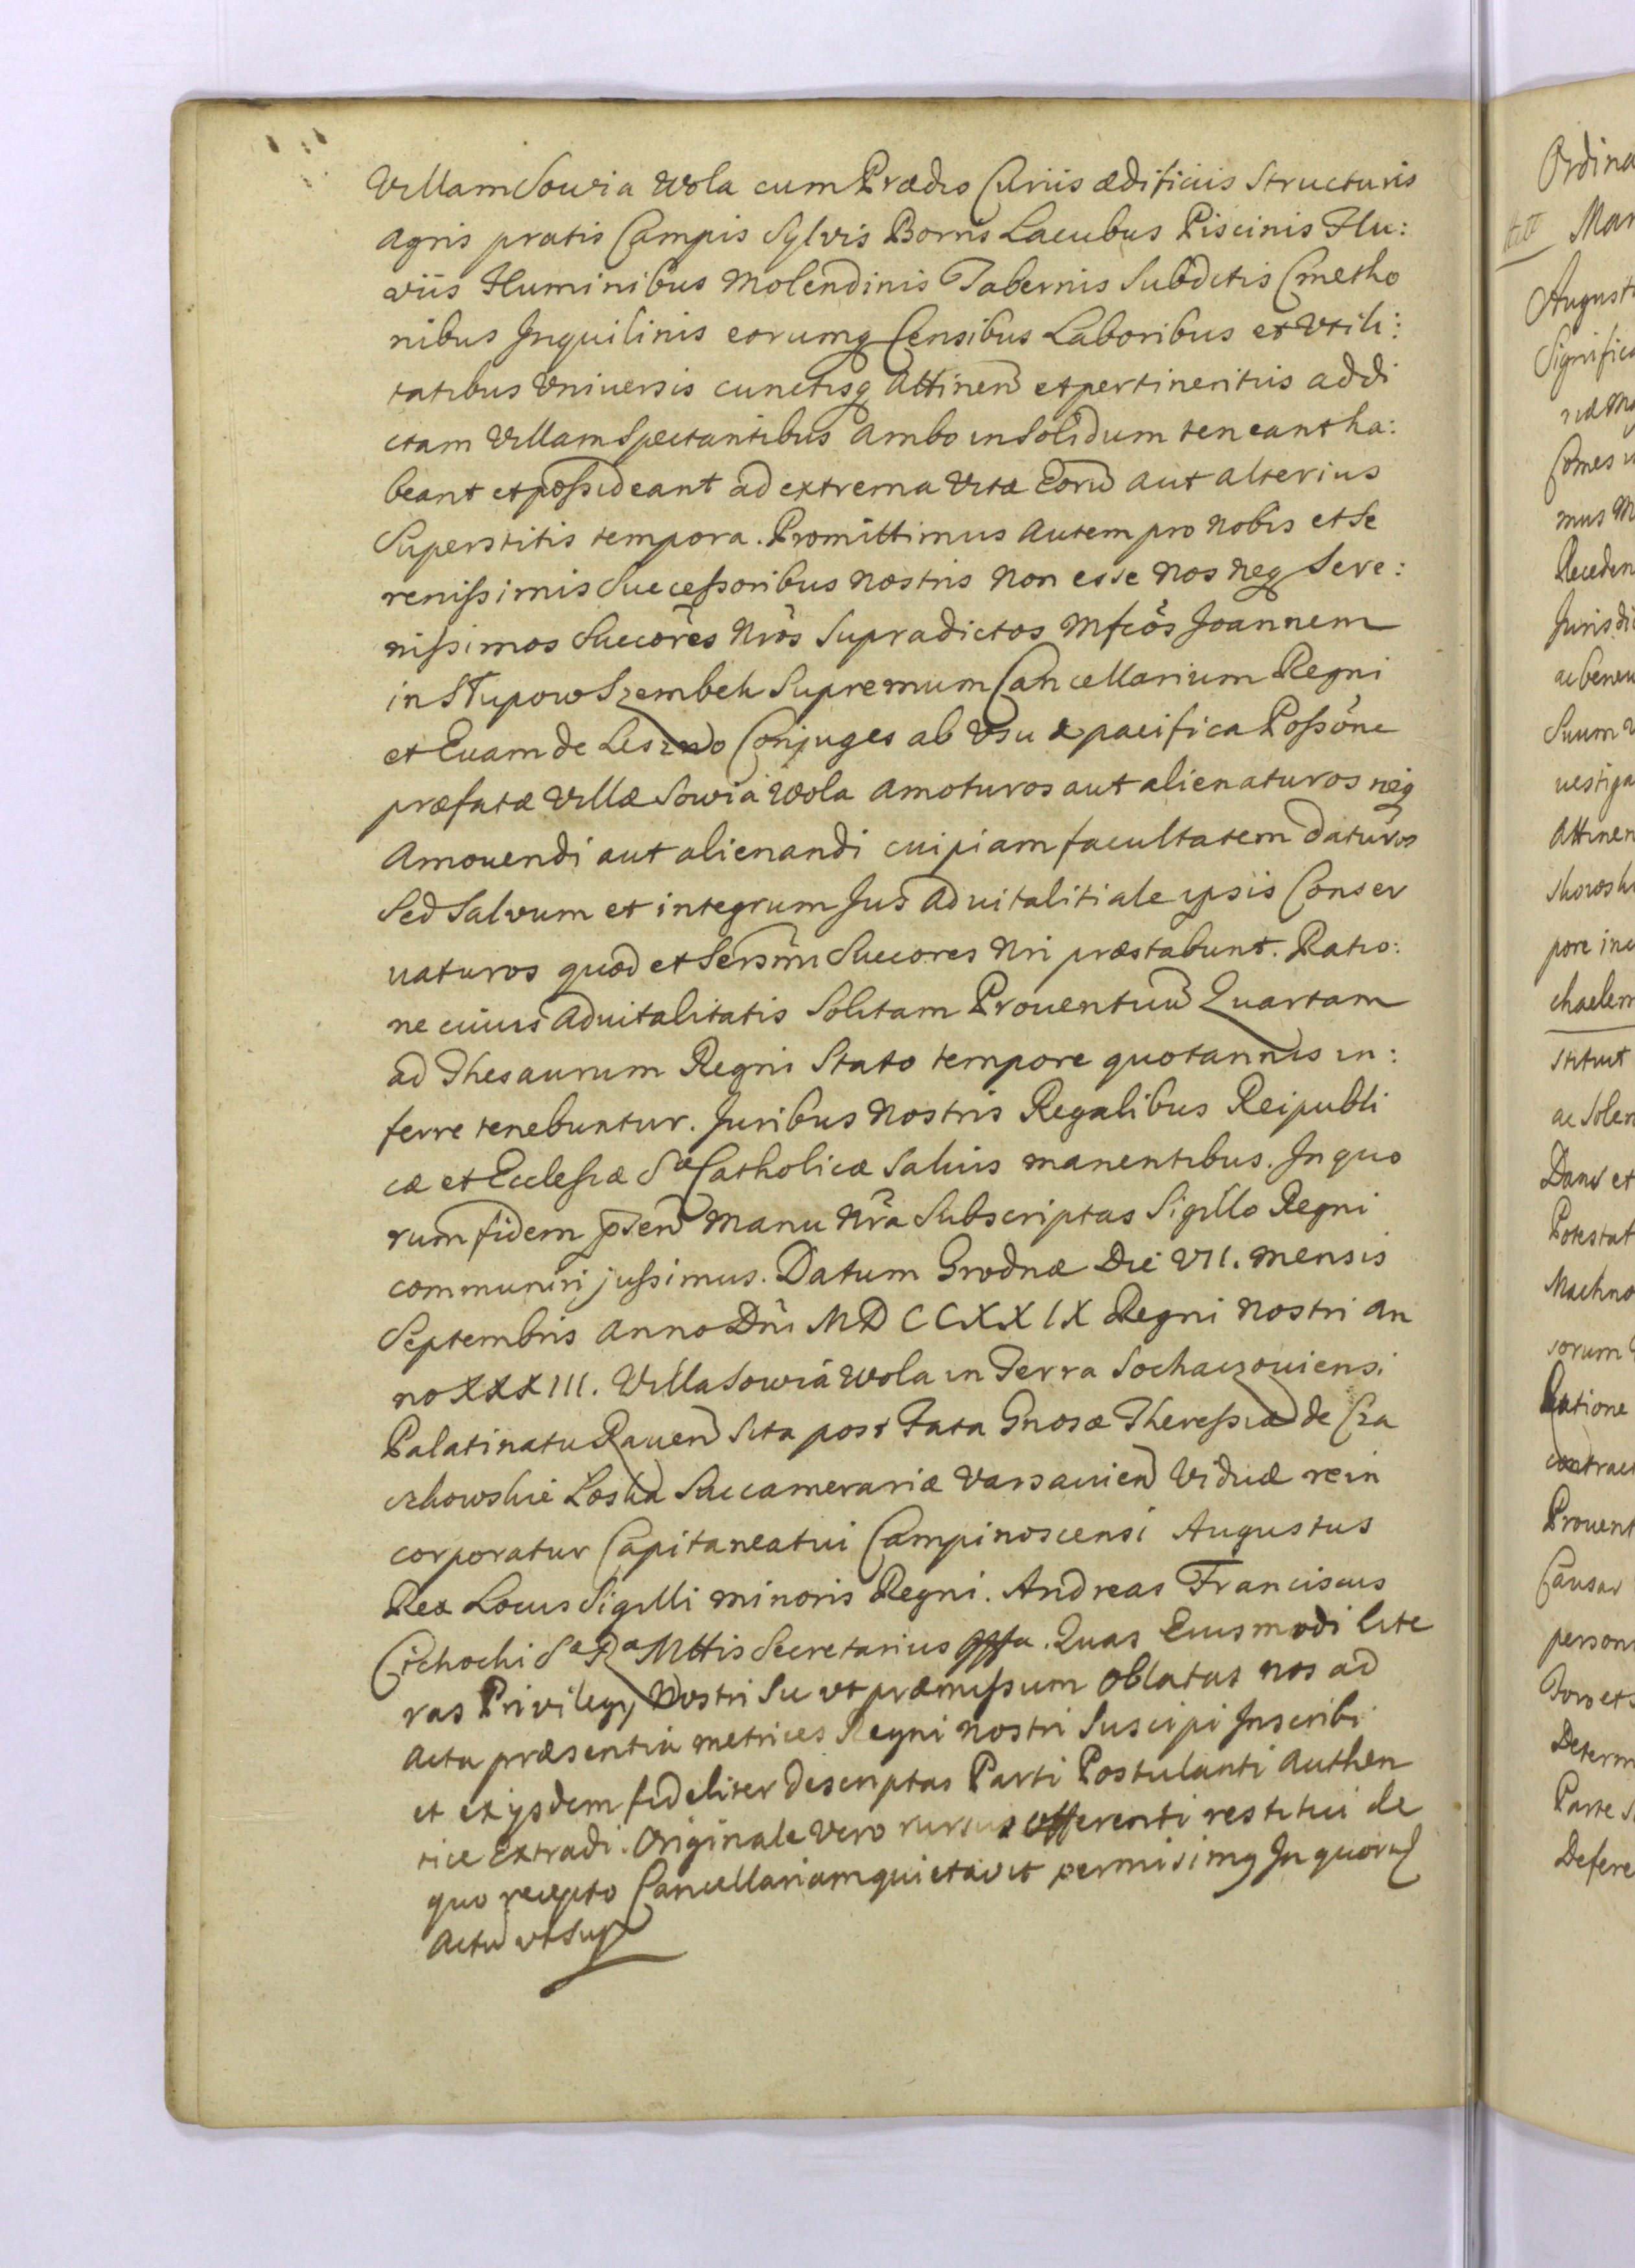 Villam Sowia Wola cum Prædio Curiis ædificiis Structuris
agris pratis Campis Sylvis Borris Lacubus Piscinis Flu:
viis Fluminibus Molendinis Tabernis Subditis Cmetho
nibus Inquilinis eorumq Censibus Laboribus et Vtili:
tatibus Vniuersis cunctisq Attinen et pertinentiis ad di
ctam Villam Spectantibus ambo in Solidum teneant ha:
beant et possideant ad extrema Vitæ Eorū aut alterius
Superstitis tempora. Promittimus autem pro nobis et Se
renissimis Successoribus nostris non esse nos neq Sere:
nissimos Succōres Nrōs Supradictos Mfcōs Joannem
in Słupow Szembek Supremum Cancellarium Regni
et Euam de Leszno Conjuges ab Vsu & pacifica Possōne
præfatæ Villæ Sowia Wola amoturos aut alienaturos neq
amouendi aut alienandi cuipiam facultatem daturos
Sed Salvum et integrum Jus aduitalitiale ipsis Conser
uaturos quod et Sersmi Succores Nri præstabunt. Ratio:
ne cuius aduitalitatis Solitam Prouentuū Quartam
ad Thesaurum Regni Stato tempore quotannis in:
ferre tenebuntur. Juribus nostris Regalibus Reipubli
cæ et Ecclesiæ Sæ Catholicæ Saluis manentibus. In quo
rum fidem p̄sen manu Nrā Subscriptas Sigillo Regni
communiri jussimus. Datum Grodnæ Die VII. mensis
Septembris anno Dni MDCCXXIX Regni nostri an
no XXXIII. Villa Sowia Wola in Terra Sochaczouiensi
Palatinatu Rauen Sita post Fata Gnosæ Theressiæ de Cza
czkowskie Loska Succamerariæ Varsauien Viduæ rein
corporatur Capitaneatui Campinoscensi Augustus
Rex Locus Sigilli minoris Regni. Andreas Franciscus
Cichocki Sa Ra Mttis Secretarius. Quas Eiusmodi lite
ras Privilegy Nostri Su vt præmissum oblatas nos ad
acta præsentia metrices Regni nostri Suscipi Inscribi
et ex ijsdem fideliter descriptas Parti Postulanti authen
tice Extradi. Originale vero rursus offerenti restitui de
quo recepto Cancellariam quietavit permisimq In quorū
Actū vt Supra